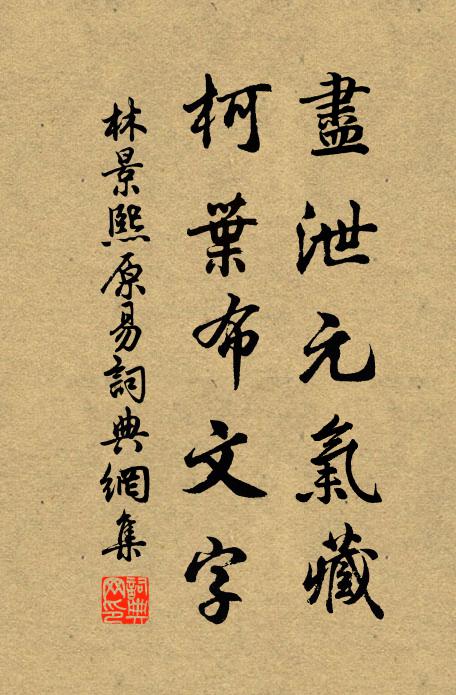 盡泄元氣藏
柯葉布文字
林景熙原易詞典網集
詞典网印